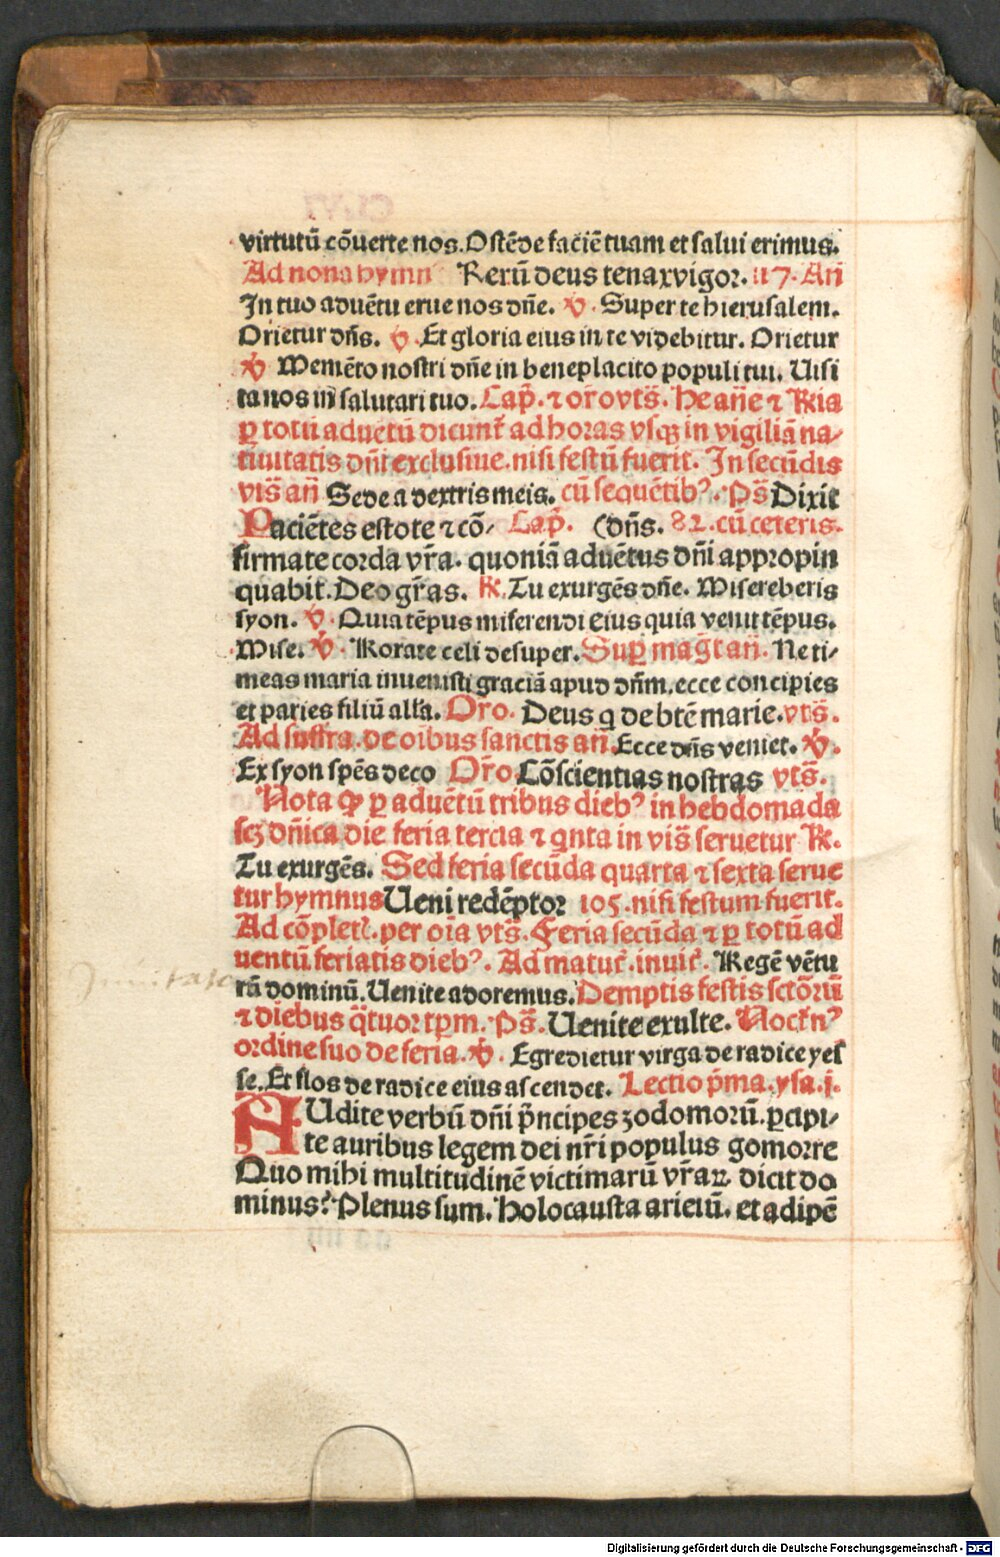 virtutū cōuerte nos. Ostēde faciē tuam et salui erimus.
Ad nona hymn̄ Rerū deus tenax vigor. 117. An̄
In tuo aduētu erue nos dn̄e. ℣. Super te hierusalem.
Orietur dn̄s. ℣. Et gloria eius in te videbitur. Orietur
℣ Memēto nostri dn̄e in beneplacito populi tui. Uisi
ta nos in salutari tuo. Cap̄. ⁊ oro vts̄. He an̄e ⁊ R̄ia
ꝑ totū aduētū dicunt̄ ad horas vsqꝫ in vigiliā na⸗
tiuitatis dn̄i exclusiue. nisi festū fuerit. In secūdis
vis̄ an̄ Sede a dextris meis. cū sequētibꝰ. Ps̄ Dixit
Paciētes estote ⁊ cō⸗ Cap̄. (dn̄s. 82. cū ceteris.
firmate corda vr̄a. quoniā aduētus dn̄i appropin
quabit. Deo gr̄as. ℟. Tu exurgēs dn̄e. Misereberis
syon. ℣. Quia tēpus miserendi eius quia venit tēpus.
Mise. ℣. Rorate celi desuper. Suꝑ maḡt an̄. Ne ti⸗
meas maria inuenisti graciā apud dn̄m. ecce concipies
et paries filiū all̄a. Oro. Deus q̄ de btē marie. vts̄.
Ad suffra. de oībus sanctis an̄. Ecce dn̄s veniet. ℣.
Ex syon spēs deco Or̄o. Cōscientias nostras vts̄.
Nota ꝙ ꝑ aduētū tribus diebꝰ in hebdomada
scꝫ dn̄ica die feria tercia ⁊ qnta in vis̄ seruetur ℟.
Tu exurgēs. Sed feria secūda quarta ⁊ sexta serue
tur hymnus Ueni redēptor 105. nisi festum fuerit.
Ad cōplet̄. per oīa vts̄. Feria secūda ⁊ ꝑ totū ad
uentū feriatis diebꝰ. Ad matut̄. inuit̄. Regē vētu
rū dominū. Uenite adoremus. Demptis festis sctōrū
⁊ diebus q̄tuor tꝑm. Ps̄. Uenite exulte. Noct̄nꝰ
ordine suo de feria. ℣. Egredietur virga de radice yes
se. Et flos de radice eius ascendet. Lectio p̄ma. ysa. j.
AUdite verbū dn̄i p̄ncipes zodomorū. ꝑcipi⸗
te auribus legem dei nr̄i populus gomorre
Quo mihi multitudinē victimarū vr̄aꝝ dicit do
minus? Plenus sum. Holocausta arietū. et adipē
Digitalisierung gefördert durch die Deutsche Forschungsgemeinschaft - DFG